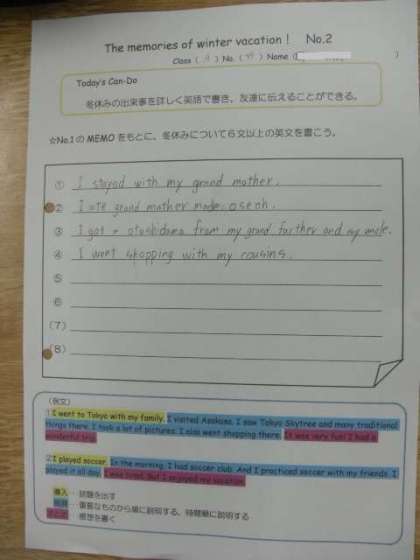 The memories of winter vacation! No.2
Class ( ) No. ( ) Name ( )
Today's Can-Do
冬休みの出来事を詳しく英語で書き、友達に伝えることができる。
☆No.1のMEMOをもとに、冬休みについて6文以上の英文を書こう。
① I stayed with my grand mother.
② I ate grand mother made osech.
③ I got a otoshidama from my grand farther and my uncle.
④ I went shopping with my cousins.
⑤
⑥
(7)
(8)
(例文)
1 I went to Tokyo with my family. I visited Asakusa. I saw Tokyo Skytree and many traditional
things there. I took a lot of pictures. I also went shopping there. It was very fun! I had a
wonderful trip.
2 I played soccer. In the morning, I had soccer club. And I practiced soccer with my friends. I
played it all day. I was tired, but I enjoyed my vacation.
導入 … 話題を出す
… 重要なものから順に説明する、時間順に説明する
まとめ … 感想を書く